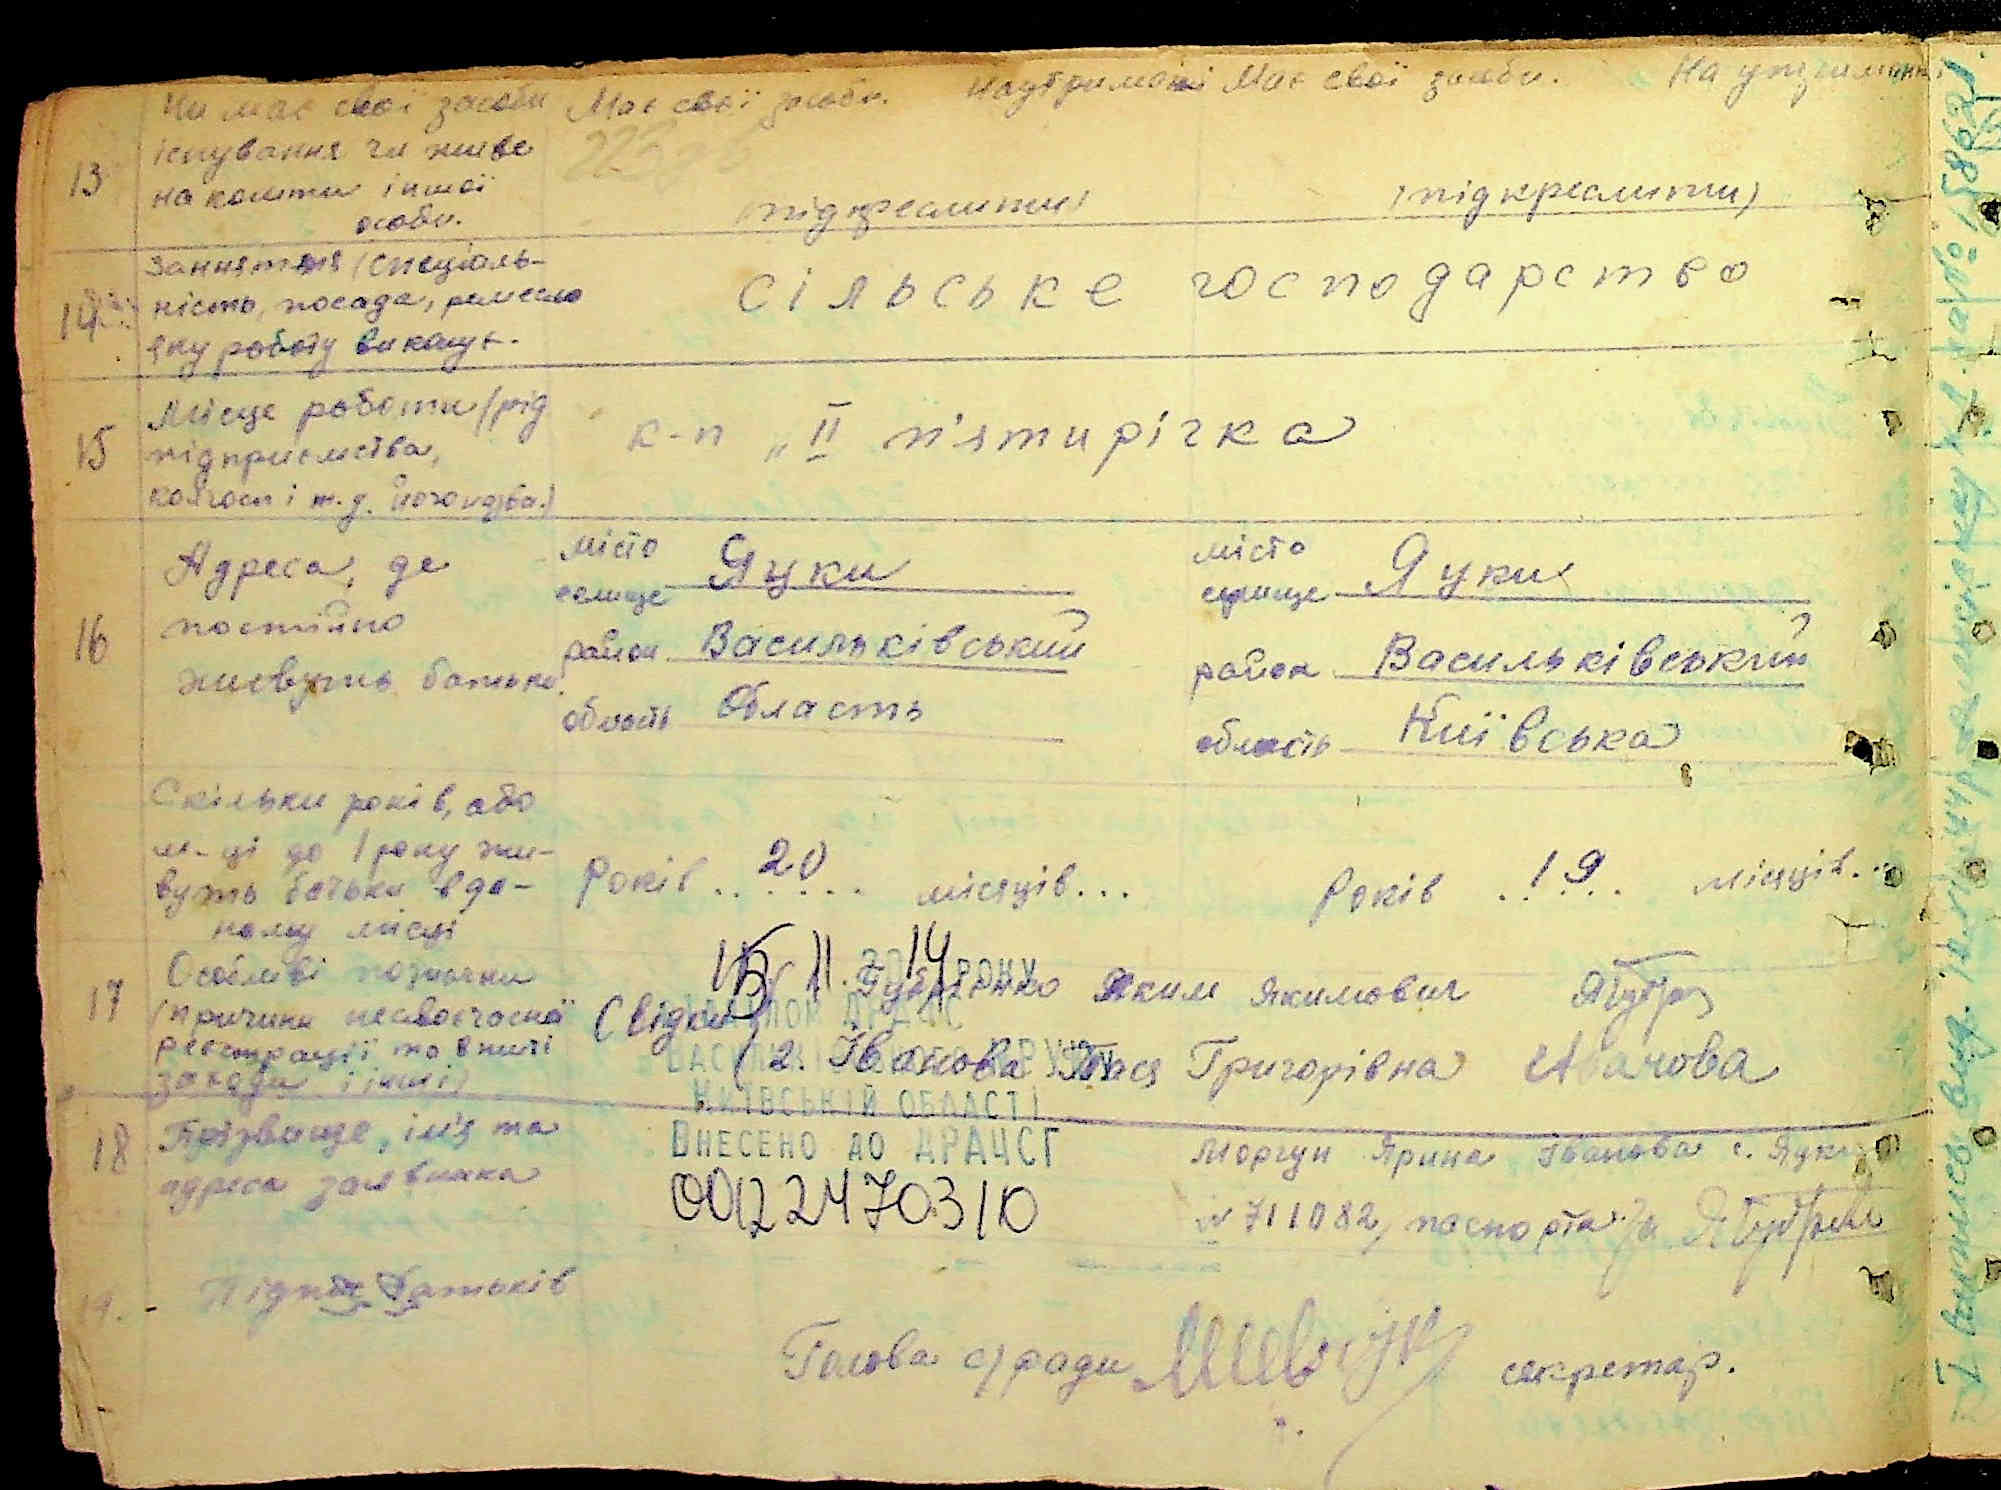 13
Чи має свої засоби
існування чи живе
на кошти іншої
особи.
Має свої засоби. На утриманні
(підкреслити)
Має свої засоби. На утриманні
(підкреслити)
14
Заняття (спеціаль-
ність, посада, ремесло
яку роботу виконує.
сільське господарство
15
Місце роботи (рід
підприємства,
колгосп і т.д. його назва.)
к-п „II п'ятирічка
16
Адреса, де
постійно
живуть батьки.
місто
селище Яцки
район Васильківський
область Область
місто
селище Яцки
район Васильківський
область Київська
Скільки років, або
м-ці до 1 року жи-
вуть батьки в да-
ному місці
Років .. 20 .. місяців...
Років . 19 . місяців...
17
Особливі позначки
(причини несвоєчасної
реєстрації та вжиті
заходи і інші)
15 11. 2014 РОКУ
Свідки
Яким Якимович
ВІДДІЛОМ ДРАЦС
2. Іванова Тася Григорівна Іванова
КИЇВСЬКІЙ ОБЛАСТІ
ВНЕСЕНО ДО ДРАЦСГ
00122470310
18
Прізвище, ім'я та
адреса заявника
Моргун Ярина Іванова с. Яцки
№ 711082, паспорта
19. - Підпис батьків
Голова с/ради секретар.